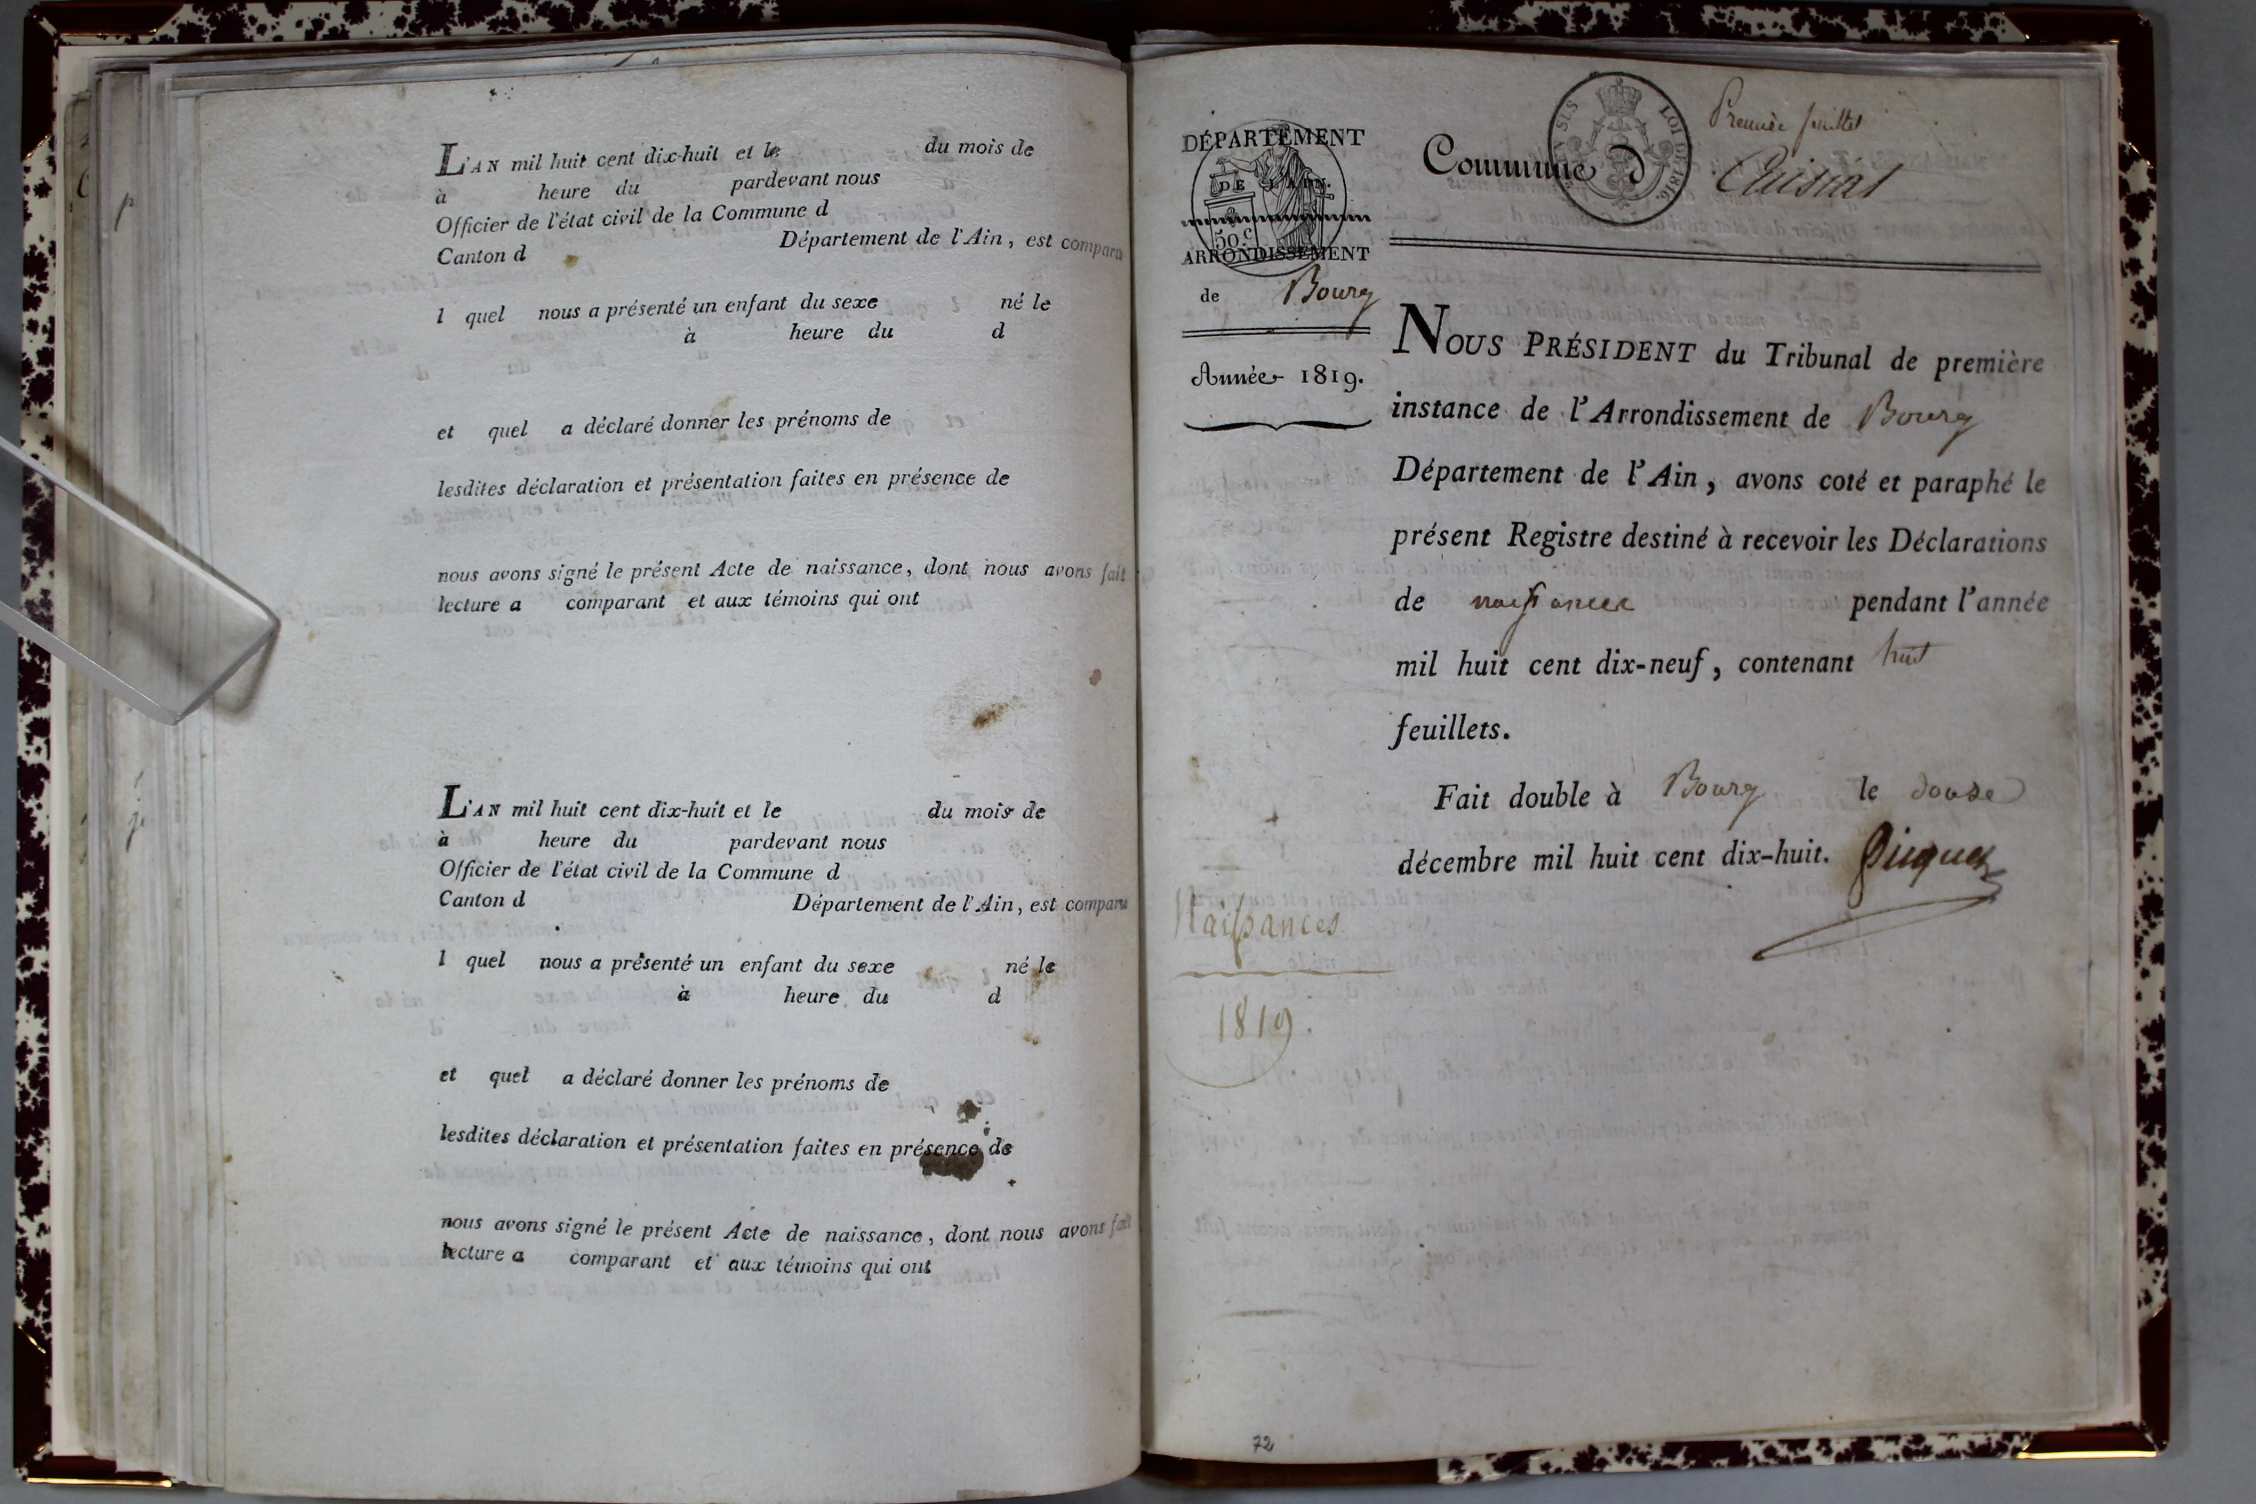 L'AN mil huit cent dix-huit et le du mois de
à heure du pardevant nous
Officier de l'état civil de la Commune d
Canton d Département de l'Ain, est comparu
l quel nous a présenté un enfant du sexe né le
à heure du d
et quel a déclaré donner les prénoms de
lesdites déclaration et présentation faites en présence de
nous avons signé le présent Acte de naissance, dont nous avons fait
lecture a comparant et aux témoins qui ont
L'AN mil huit cent dix-huit et le du mois de
à heure du pardevant nous
Officier de l'état civil de la Commune d
Canton d Département de l'Ain, est comparu
l quel nous a présenté un enfant du sexe né le
à heure du d
et quel a déclaré donner les prénoms de
lesdites déclaration et présentation faites en présence de
nous avons signé le présent Acte de naissance, dont nous avons fait
lecture a comparant et aux témoins qui ont
DÉPARTEMENT
DE L'AIN.
50 c
ARRONDISSEMENT
de Bourg
Année 1819.
Naissances
1819.
LOI DE 1816.
Premier feuillet
Commune d Cuisiat
NOUS PRÉSIDENT du Tribunal de première
instance de l'Arrondissement de Bourg
Département de l'Ain, avons coté et paraphé le
présent Registre destiné à recevoir les Déclarations
de naissances pendant l'année
mil huit cent dix-neuf, contenant huit
feuillets.
Fait double à Bourg le douze
décembre mil huit cent dix-huit. Picquet
72